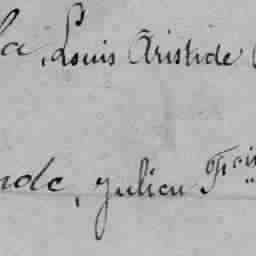 la, Louis Aristide
nde, Julien